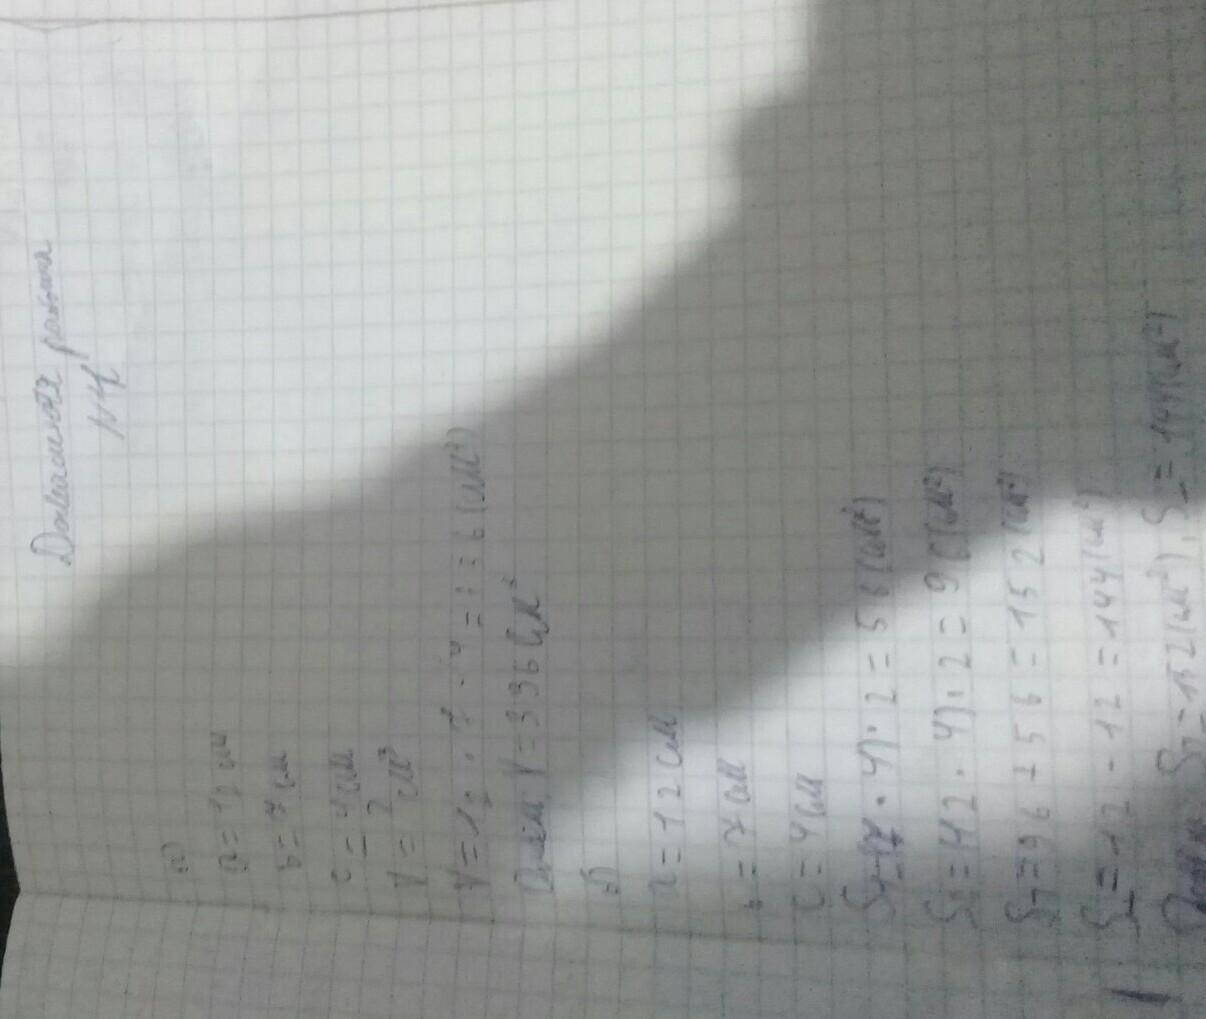 Домашняя работа
№1
а)
a = 12 см
b = 7 см
c = 4 см
V = ? см³
V = 12 · 7 · 4 = 336 (см³)
Ответ: V = 336 см³
б)
a = 12 см
b = 7 см
c = 4 см
S = (7 · 4) · 2 = 56 (см²)
S = (12 · 4) · 2 = 96 (см²)
S = 96 + 56 = 152 (см²)
S = 12 · 12 = 144 (см²)
Ответ: S = 152 (см²), S = 144 (см²)